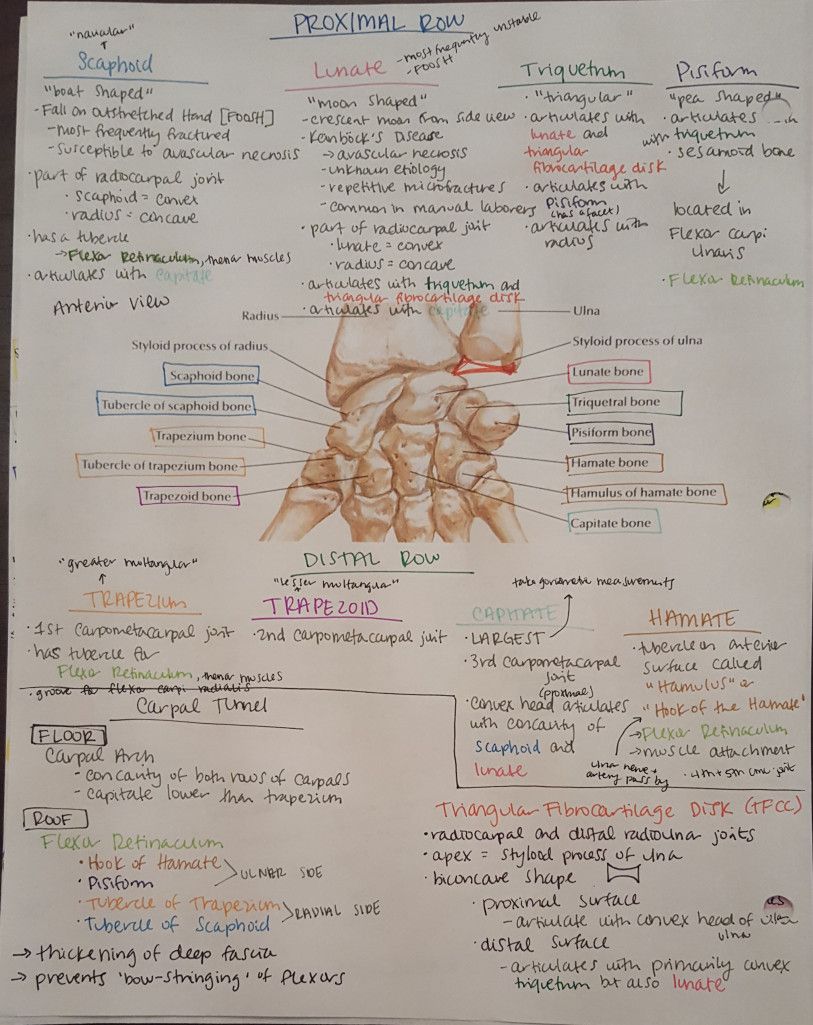 PROXIMAL ROW
"navicular"
Scaphoid
"boat shaped"
- Fall on outstretched Hand [FOOSH]
- most frequently fractured
- susceptible to avascular necrosis
· part of radiocarpal joint
· scaphoid = convex
· radius = concave
· has a tubercle
→ Flexor Retinaculum, thenar muscles
· articulates with capitate
Lunate
- most frequently unstable
- FOOSH
"moon shaped"
- crescent moon from side view
· Keinböck's Disease
→ avascular necrosis
- unknown etiology
- repetitive microfractures
- common in manual laborers
· part of radiocarpal joint
· lunate = convex
· radius = concave
· articulates with triquetrum and
triangular fibrocartilage disk
· articulates with capitate
Triquetrum
· "triangular"
· articulates with
lunate and
triangular
fibrocartilage disk
· articulates with
Pisiform
(has a facet)
· articulates with
radius
Pisiform
"pea shaped"
· articulates
with triquetrum
· sesamoid bone
↓
located in
Flexor carpi
Ulnaris
· Flexor Retinaculum
Anterior View
Radius
Ulna
Styloid process of radius
Styloid process of ulna
Scaphoid bone
Lunate bone
Tubercle of scaphoid bone
Triquetral bone
Trapezium bone
Pisiform bone
Tubercle of trapezium bone
Hamate bone
Trapezoid bone
Hamulus of hamate bone
Capitate bone
DISTAL ROW
"greater multangular"
TRAPEZIUM
· 1st carpometacarpal joint
· has tubercle for
Flexor Retinaculum, thenar muscles
· groove for flexor carpi radialis
"lesser multangular"
TRAPEZOID
· 2nd carpometacarpal joint
take goniometric measurements
CAPITATE
· LARGEST
· 3rd carpometacarpal
joint
(proximal)
· convex head articulates
with concavity of
scaphoid and
lunate
HAMATE
· tubercle on anterior
surface called
"Hamulus" or
"Hook of the Hamate"
→ Flexor Retinaculum
→ muscle attachment
ulnar nerve +
artery pass by
· 4th + 5th cmc joint
Carpal Tunnel
FLOOR
Carpal Arch
- concavity of both rows of carpals
- capitate lower than trapezium
ROOF
Flexor Retinaculum
· Hook of Hamate
· Pisiform
ULNER SIDE
· Tubercle of Trapezium
· Tubercle of Scaphoid
RADIAL SIDE
→ thickening of deep fascia
→ prevents 'bow-stringing' of flexors
Triangular Fibrocartilage Disk (TFCC)
· radiocarpal and distal radioulnar joints
· apex = styloid process of ulna
· biconcave shape
· proximal surface
- articulate with convex head of
ulna
· distal surface
- articulates with primarily convex
triquetrum but also lunate